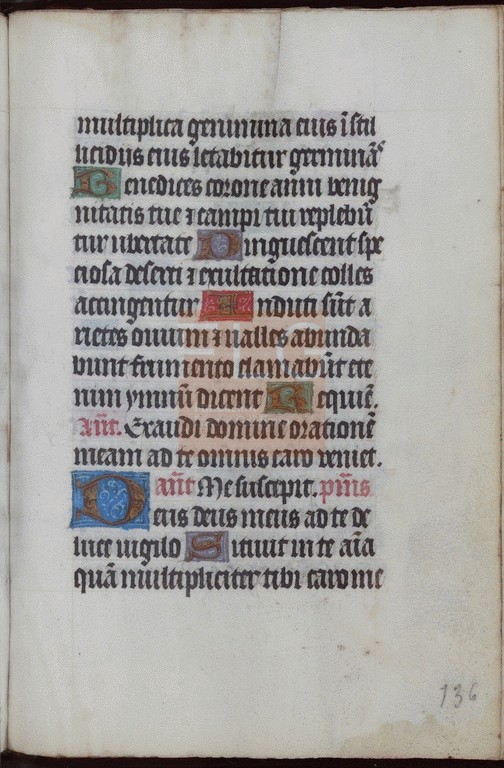 multiplica genimina eius ī stil
licidijs eius letabitur germinās
Benedices corone anni benig
nitatis tue ⁊ campi tui replebūn
tur ubertate Pinguescent spe
ciosa deserti ⁊ exultatione colles
accingentur Induti sūt a
rietes ouium ⁊ ualles abunda
bunt frumento clamabūt ete
nim ymnū dicent Requiē.
Añt. Exaudi domine orationē
meam ad te omnis caro veniet.
añt Me suscepit. psm̄s
Deus deus meus ad te de
luce uigilo Sitiuit in te aīa
quā multipliciter tibi caro me
136